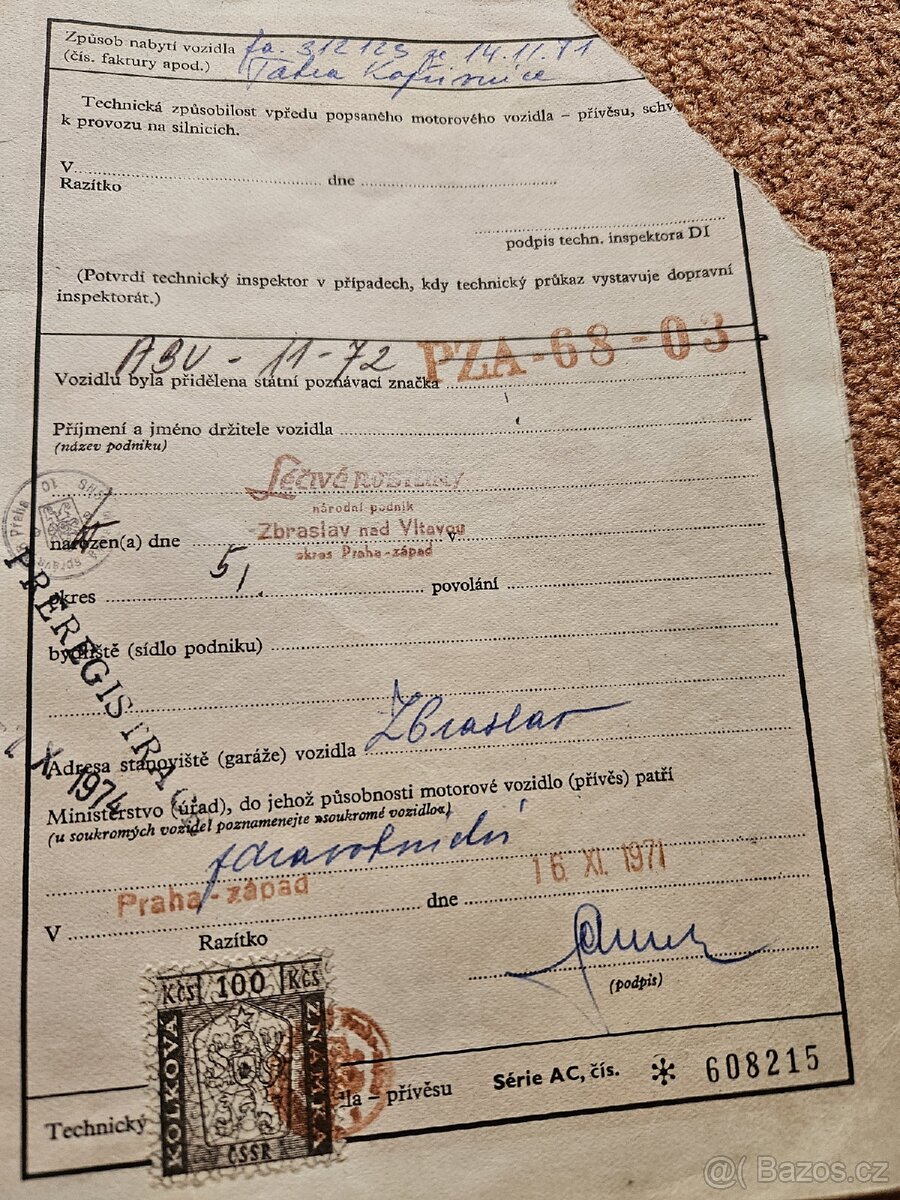 Způsob nabytí vozidla fa. 312123 ze 14.11.71
(čís. faktury apod.) Tatra Kopřivnice
Technická způsobilost vpředu popsaného motorového vozidla – přívěsu, schv
k provozu na silnicích.
V
dne
Razítko
podpis techn. inspektora DI
(Potvrdí technický inspektor v případech, kdy technický průkaz vystavuje dopravní
inspektorát.)
ABU-11-72 PZA-68-03
Vozidlu byla přidělena státní poznávací značka
Příjmení a jméno držitele vozidla
(název podniku)
Léčivé ROSTLINY
národní podnik
narozen(a) dne Zbraslav nad Vltavou v
okres Praha-západ
okres 5, povolání
bydliště (sídlo podniku)
PŘEREGISTRACE
Adresa stanoviště (garáže) vozidla Zbraslav
X. 1974
Ministerstvo (úřad), do jehož působnosti motorové vozidlo (přívěs) patří
(u soukromých vozidel poznamenejte »soukromé vozidlo«)
zdravotnictví
V Praha-západ dne 16. XI. 1971
Razítko
(podpis)
Kčs 100 Kčs
KOLKOVÁ ZNÁMKA
ČSSR
Technický la – přívěsu Série AC, čís. * 608215
@( Bazos.cz